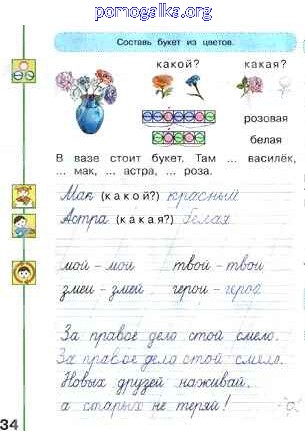 pomogalka.org
Составь букет из цветов.
какой? какая?
розовая
белая
В вазе стоит букет. Там ... василёк,
... мак, ... астра, ... роза.
Мак (какой?) красный
Астра (какая?) белая
мой – мои твой – твои
змеи – змей герои – герой
За правое дело стой смело.
За правое дело стой смело.
Новых друзей наживай,
а старых не теряй!
34